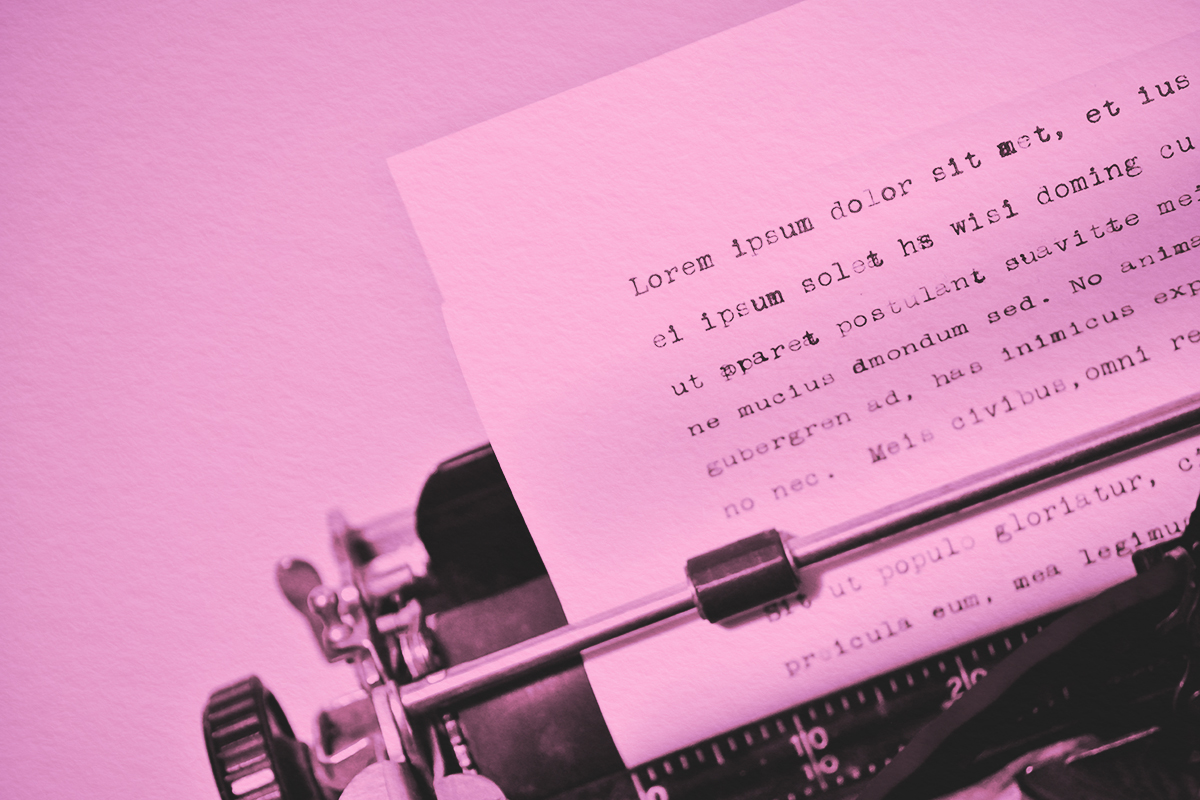 Lorem ipsum dolor sit met, et ius
ei ipsum solet hs wisi doming cu
ut pparet postulant suavitte mei
ne mucius dmondum sed. No anima
gubergren ad, has inimicus exp
no nec. Meis civibus,omni re
Sit ut populo gloriatur, ci
pricula eum, mea legimus
0 10 20
10